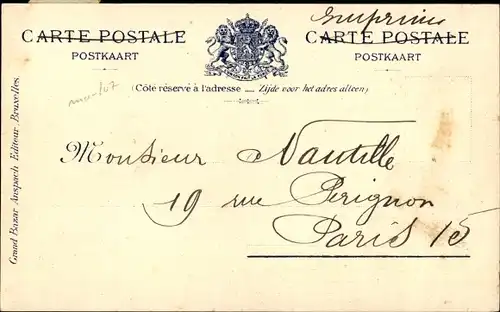 Imprimé
CARTE POSTALE CARTE POSTALE
POSTKAART POSTKAART
(Côté réservé à l'adresse — Zijde voor het adres alleen)
Monsieur Nautille
19 rue Pérignon
Paris 15
Grand Bazar Anspach Editeur Bruxelles